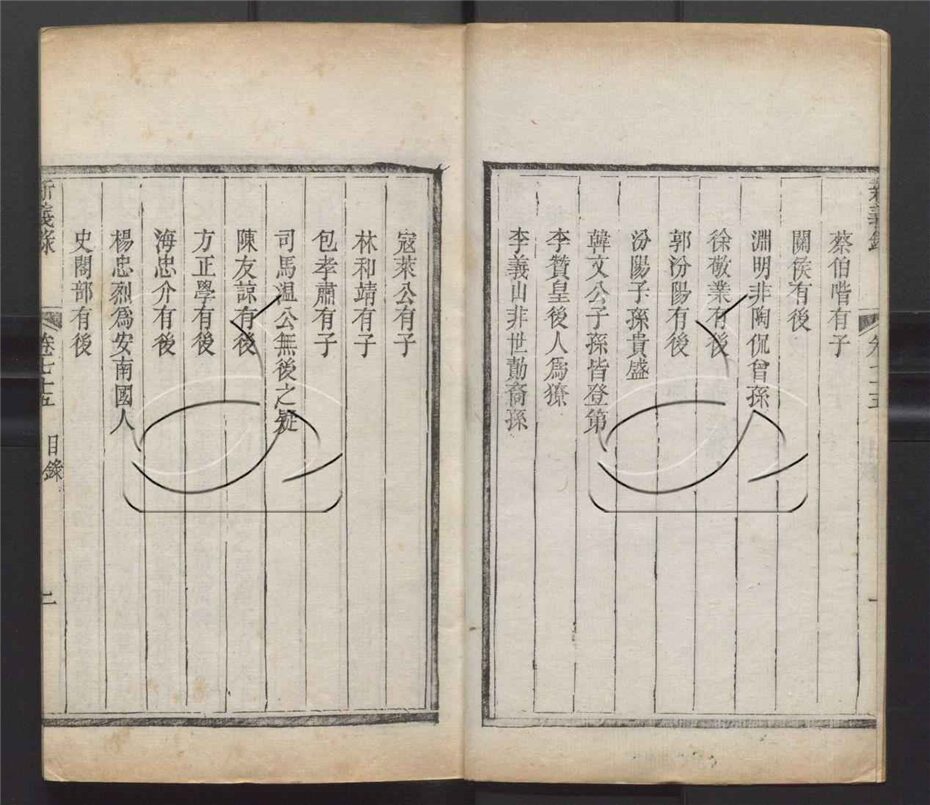 蔡伯喈有子
關侯有後
淵明非陶侃曾孫
徐敬業有後
郭汾陽有後
汾陽子孫貴盛
韓文公子孫皆登第
李贊皇後人爲獠
李義山非世勣裔孫
寇萊公有子
林和靖有子
包孝肅有子
司馬温公無後之疑
陳友諒有後
方正學有後
海忠介有後
楊忠烈爲安南國人
史閣部有後
新義錄
卷七十五
目錄
二